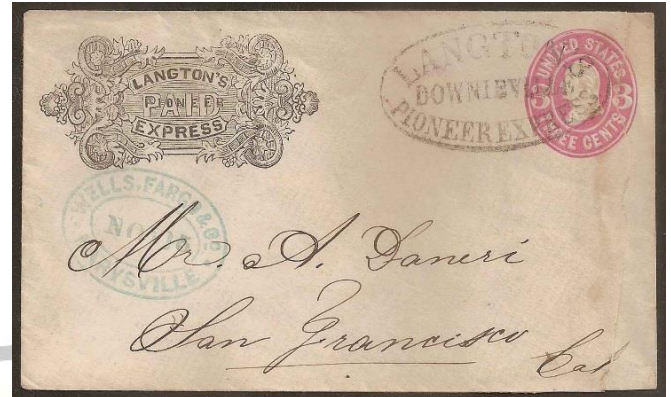 LANGTON'S
PIONEER
PAID
EXPRESS
LANGTON
DOWNIEV
PIONEER EX
UNITED STATES
3 3
THREE CENTS
WELLS, FARGO & Co
NO
MARYSVILLE
Mr. A. Daneri
San Francisco
Cal